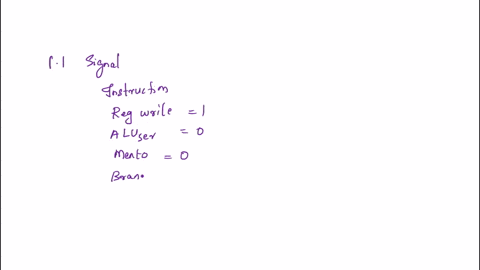 1.1 Signal
Instruction
Reg write = 1
ALUser = 0
Memto = 0
Bran